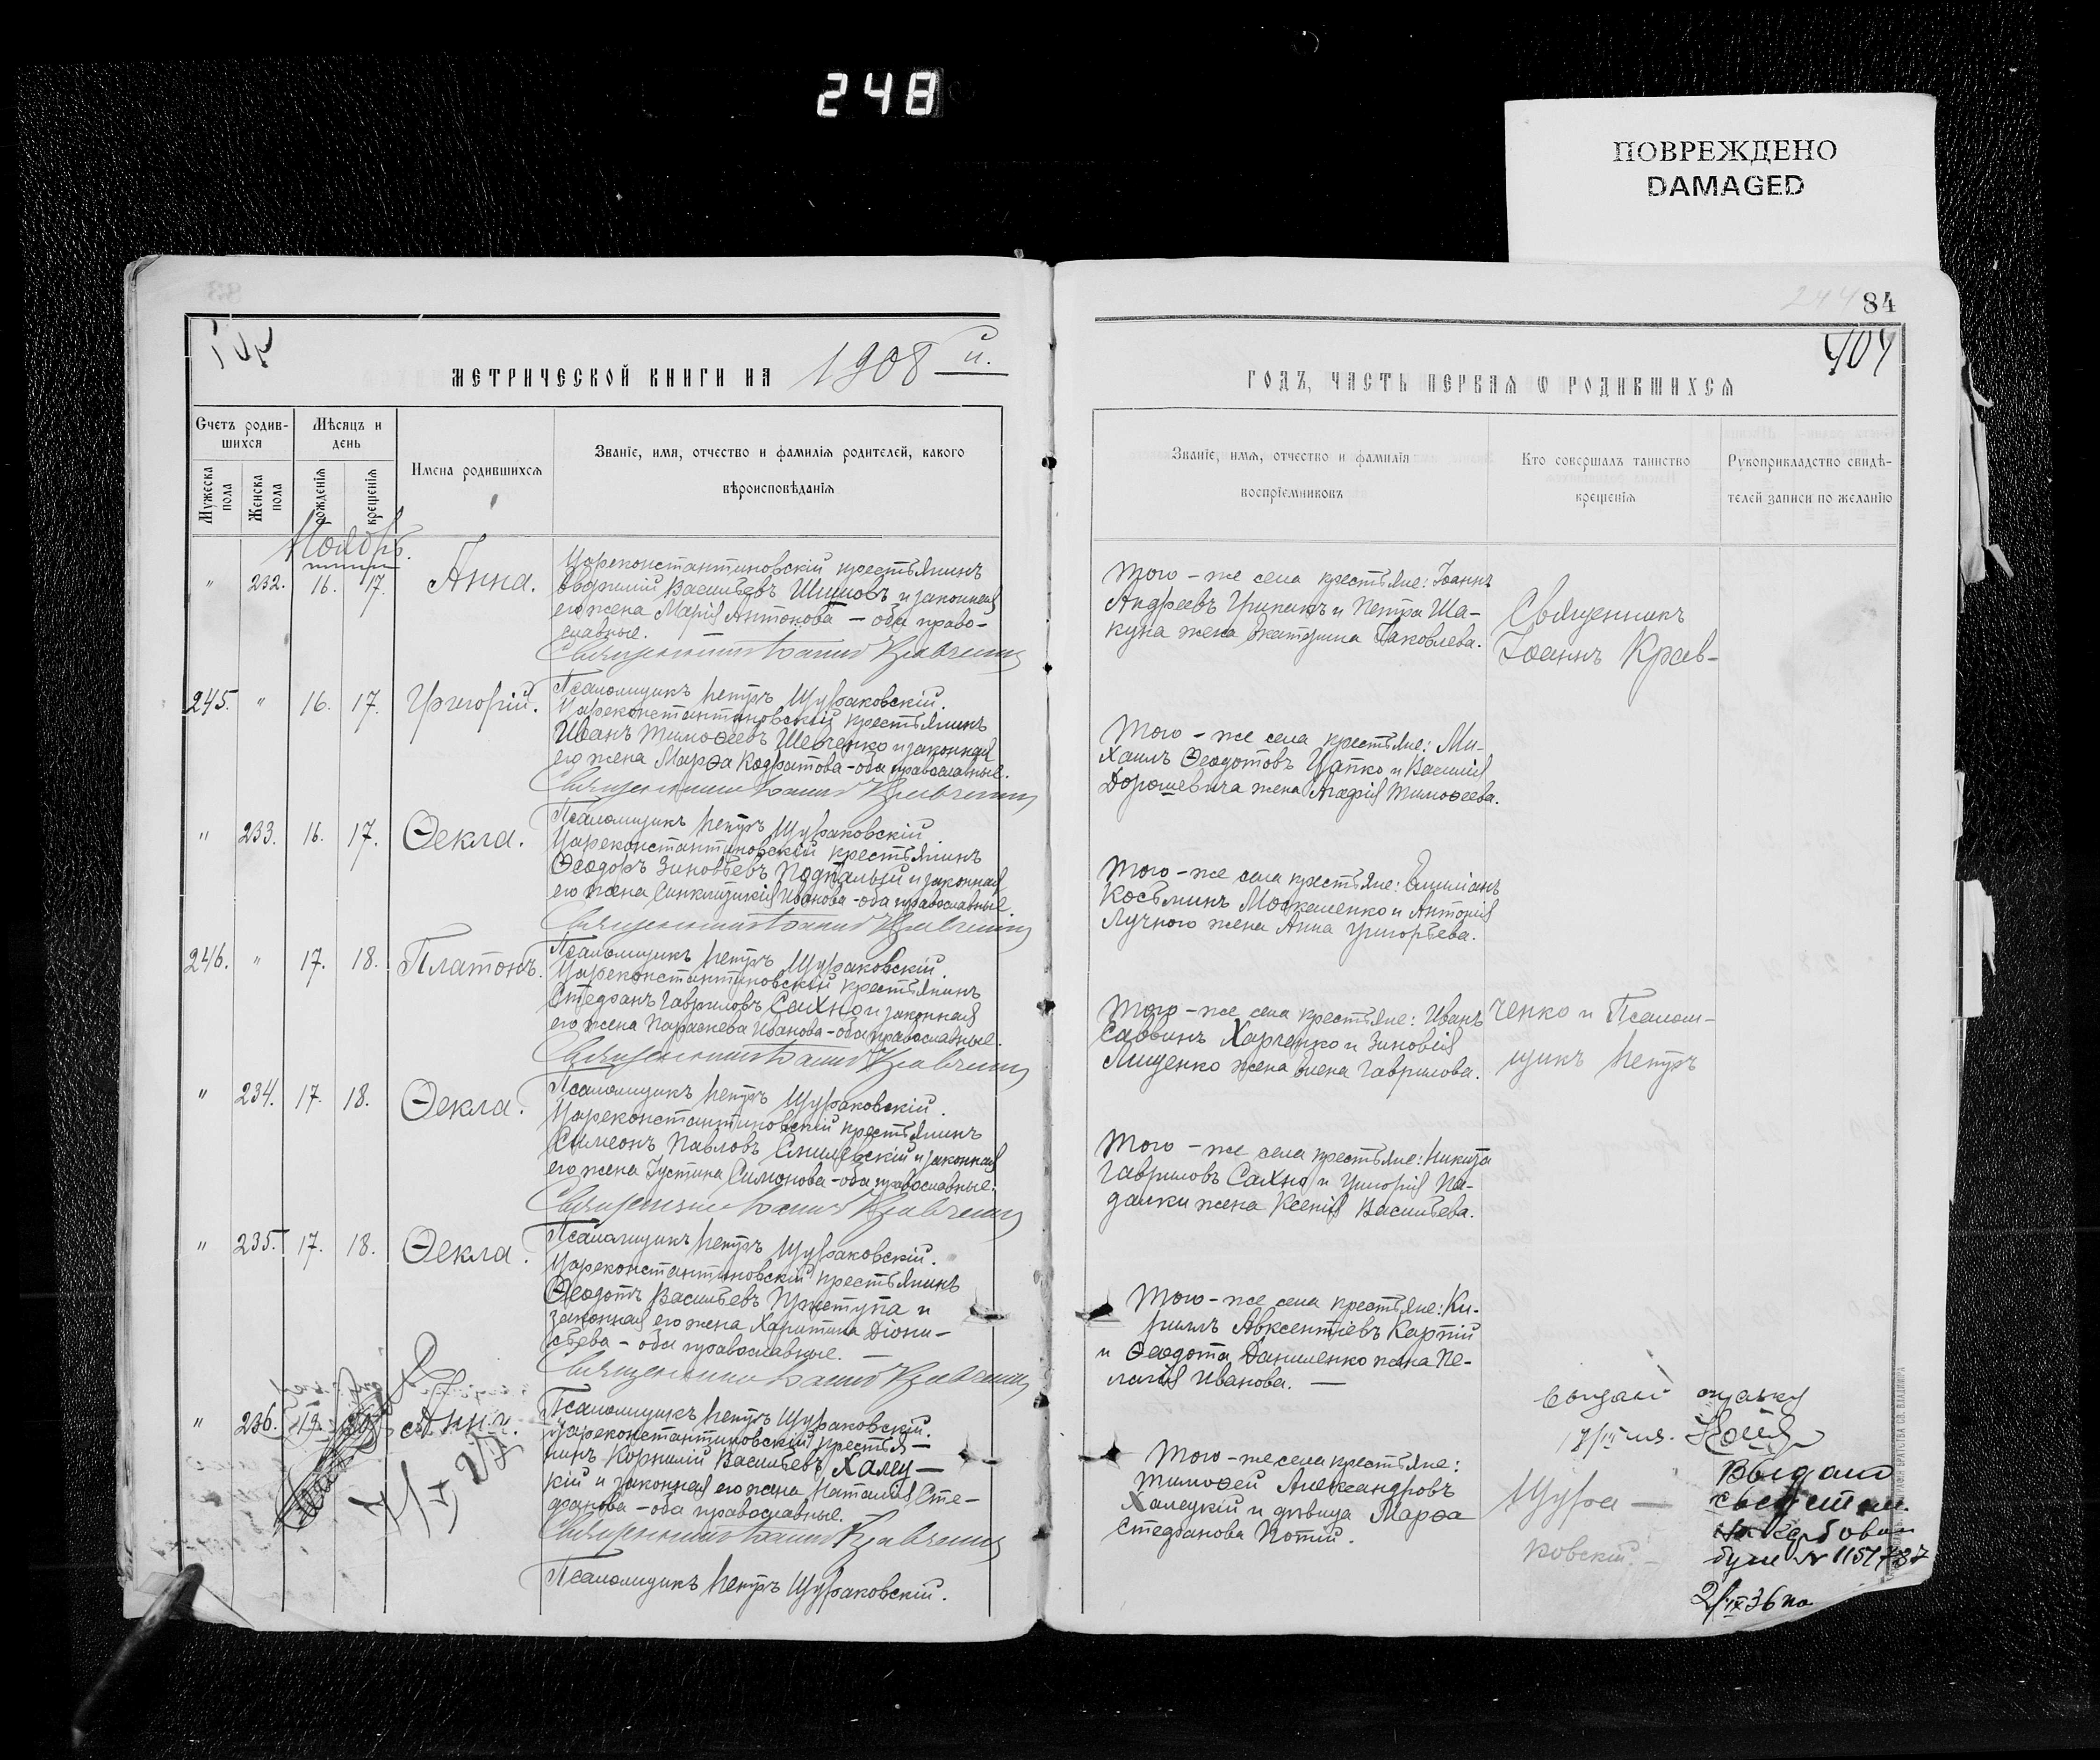 248
ПОВРЕЖДЕНО
DAMAGED
244 84
404
МЕТРИЧЕСКОЙ КНИГИ НА 1908 й.
Счетъ родив-
шихся
Мѣсяцъ и
день
Мужеска
пола
Женска
пола
рожденія
крещенія
Имена родившихся
Званіе, имя, отчество и фамилія родителей, какого
вѣроисповѣданія
Ноябрь.
" 232. 16. 17. Анна.
Цареконстантиновскій крестьянинъ
Евфимій Васильевъ и законная
его жена Марія Антонова – оба право-
славные.
Священникъ Іоаннъ Кравченко
Псаломщикъ Петръ Щураковскій.
245. " 16. 17. Григорій.
Цареконстантиновскій крестьянинъ
Иванъ Тимоѳеевъ Шевченко и законная
его жена Марѳа Кодратова – оба православные.
Священникъ Іоаннъ Кравченко
Псаломщикъ Петръ Щураковскій
" 233. 16. 17. Ѳекла.
Цареконстантиновскій крестьянинъ
Ѳеодоръ Зиновьевъ Подпалый и законная
его жена Синклитикія Иванова – оба православные.
Священникъ Іоаннъ Кравченко
Псаломщикъ Петръ Щураковскій.
246. " 17. 18. Платонъ.
Цареконстантиновскій крестьянинъ
Стефанъ Гавриловъ Сахно и законная
его жена Параскева Иванова – оба православные.
Священникъ Іоаннъ Кравченко
Псаломщикъ Петръ Щураковскій.
" 234. 17. 18. Ѳекла.
Цареконстантиновскій крестьянинъ
Симеонъ Павловъ и законная
его жена Іустина Симонова – оба православные.
Священникъ Іоаннъ Кравченко
Псаломщикъ Петръ Щураковскій.
" 235. 17. 18. Ѳекла.
Цареконстантиновскій крестьянинъ
Ѳеодотъ Васильевъ и
законная его жена Харитина Діони-
сьева – оба православные. –
Священникъ Іоаннъ Кравченко
Псаломщикъ Петръ Щураковскій.
" 236. 19. Анна.
Цареконстантиновскій крестья–
нинъ Корнилій Васильевъ Халец–
кій и законная его жена Наталія Сте–
фанова – оба православные.
Священникъ Іоаннъ Кравченко
Псаломщикъ Петръ Щураковскій.
ГОДЪ, ЧАСТЬ ПЕРВАЯ Ѡ РОДИВШИХСЯ
Званіе, имя, отчество и фамилія
воспріемниковъ
Кто совершалъ таинство
крещенія
Рукоприкладство свидѣ-
телей записи по желанію
Того – же села крестьяне: Іоаннъ
Андреевъ и Петра Ша-
куна жена Екатерина Іаковлева.
Того – же села крестьяне: Ми-
хаилъ Ѳеодотовъ Цапко и Василія
Дорошевича жена Агафія Тимоѳеева.
Того – же села крестьяне: Емиліанъ
Косьминъ Москаленко и Антонія
Лучного жена Анна Григорьева.
Того – же села крестьяне: Иванъ
Саввинъ Харченко и Зиновія
Лиценко жена Елена Гаврилова.
Того – же села крестьяне: Никита
Гавриловъ Сахно и Григорія Па-
далки жена Ксенія Васильева.
Того – же села крестьяне: Ки-
риллъ Авксентіевъ Картій
и Ѳеодота Даниленко жена Пе-
лагія Иванова. –
Того – же села крестьяне:
Тимоѳей Александровъ
Халецкій и дѣвица Марѳа
Стефанова Потій.
Священникъ
Іоаннъ Крав–
ченко и Псалом–
щикъ Петръ
Щура –
ковскій. –
2/IX 36